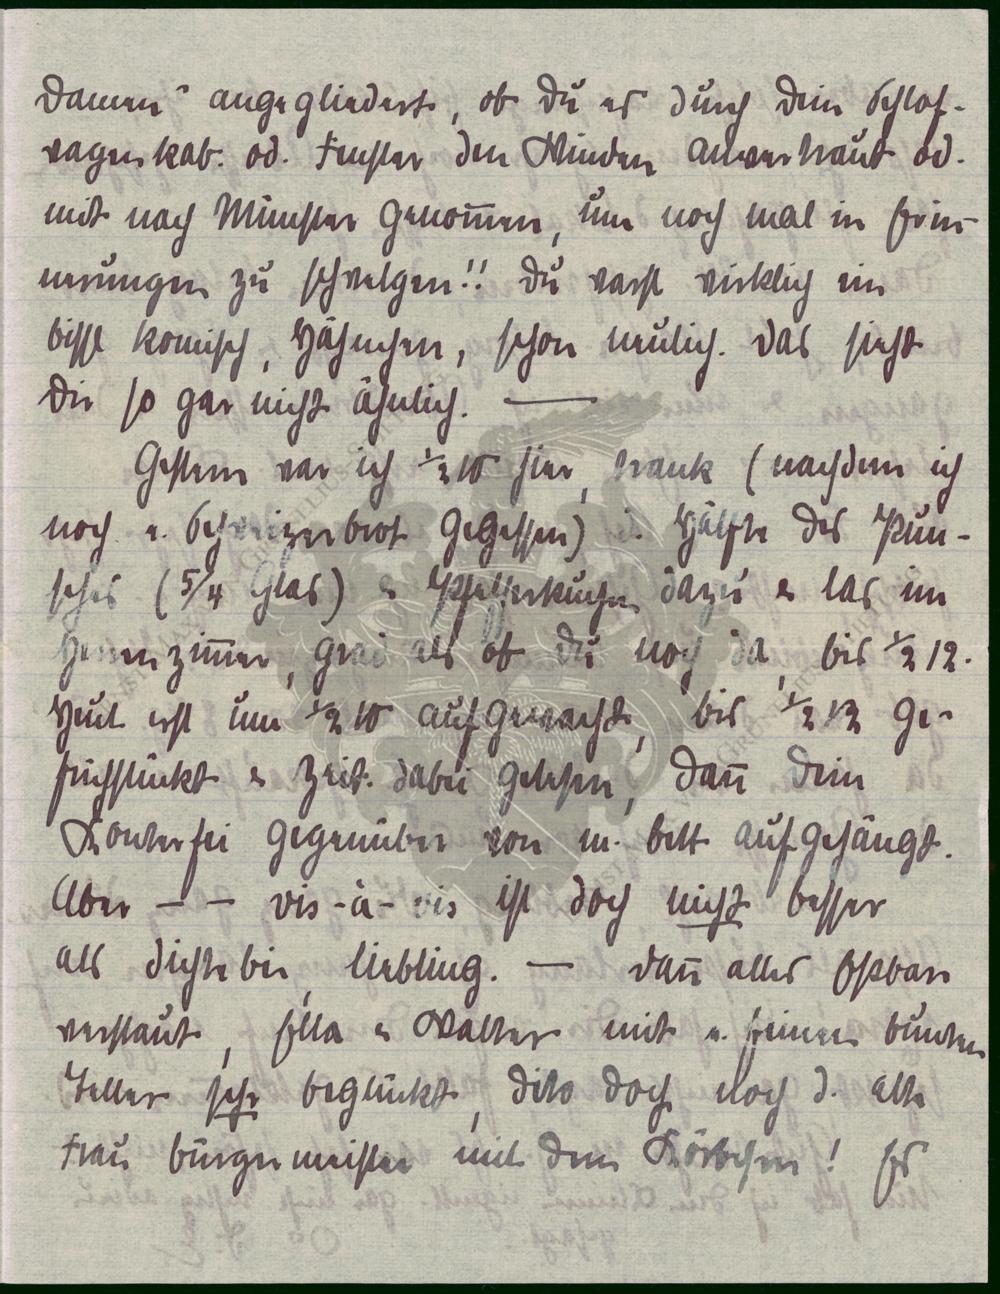 Damen" angegliedert, ob Du es durch Dein Schlaf-
wagenkab. od. Fenster den Winden anvertraut od.
mit nach Münster genom̅en, um noch mal in Erin-
nerungen zu schwelgen!! Du warst wirklich ein
bissl komisch, Hähnchen, schon neulich. Das sieht
Dir so gar nicht ähnlich. —
Gestern war ich ½ 10 hier, trank (nachdem ich
noch e. Schweizerbrot gegessen) d. Hälfte des Pun-
sches (5/4 Glas) & Pfefferkuchen dazu & las im
Herrenzim̅er, grad als ob Du noch da, bis ½ 12.
Heut erst um ½ 10 aufgewacht, bis ½ 12 ge-
frühstückt & Zeit. dabei gelesen, dan̅ Dein
Konterfei gegenüber von m. Bett aufgehängt.
Aber — — vis-à-vis ist doch nicht besser
als dichtebei, Liebling. — Dan̅ alles Eßbare
verstaut, Ella & Walter mit e. feinen bunten
Teller sehr beglückt, dito doch noch d. alte
Frau Bürgermeister mit dem Körbchen! Es